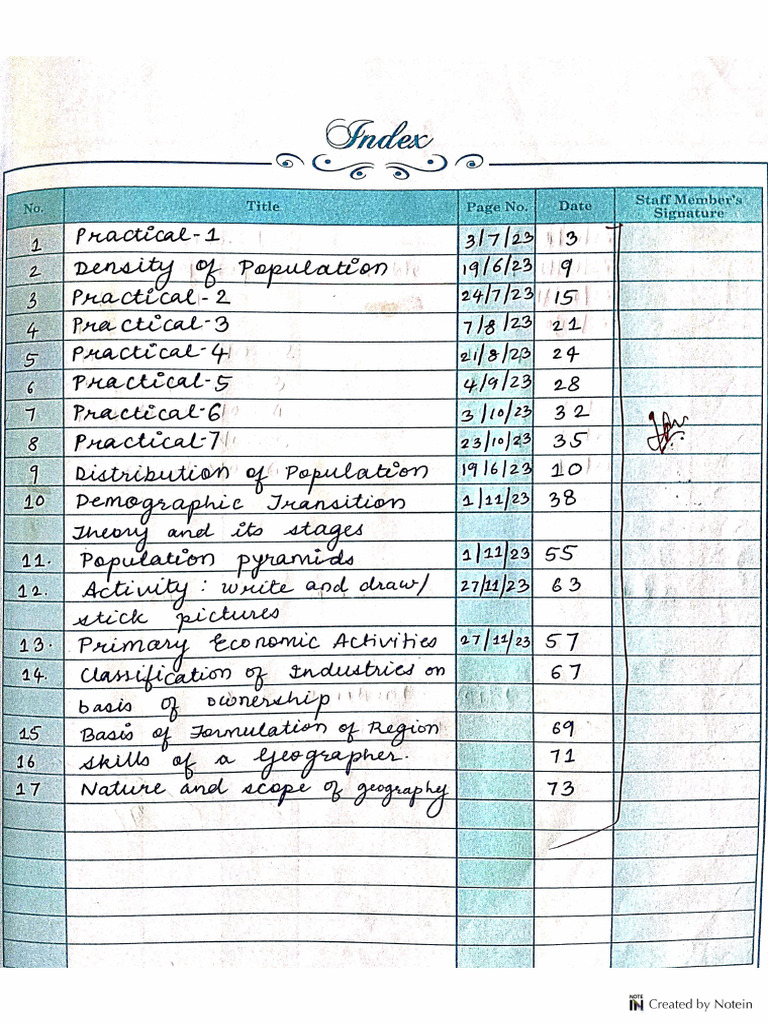 Index
No. Title Page No. Date Staff Member's Signature
1 Practical-1 3/7/23 3
2 Density of Population 19/6/23 9
3 Practical-2 24/7/23 15
4 Practical-3 7/8/23 21
5 Practical-4 21/8/23 24
6 Practical-5 4/9/23 28
7 Practical-6 3/10/23 32
8 Practical-7 23/10/23 35
9 Distribution of Population 19/6/23 10
10 Demographic Transition 1/11/23 38
Theory and its stages
11. Population pyramids 1/11/23 55
12. Activity: write and draw/ 27/11/23 63
stick pictures
13. Primary Economic Activities 27/11/23 57
14. Classification of Industries on 67
basis of ownership
15 Basis of Formulation of Region 69
16 Skills of a Geographer. 71
17 Nature and scope of geography 73
NOTE IN Created by Notein